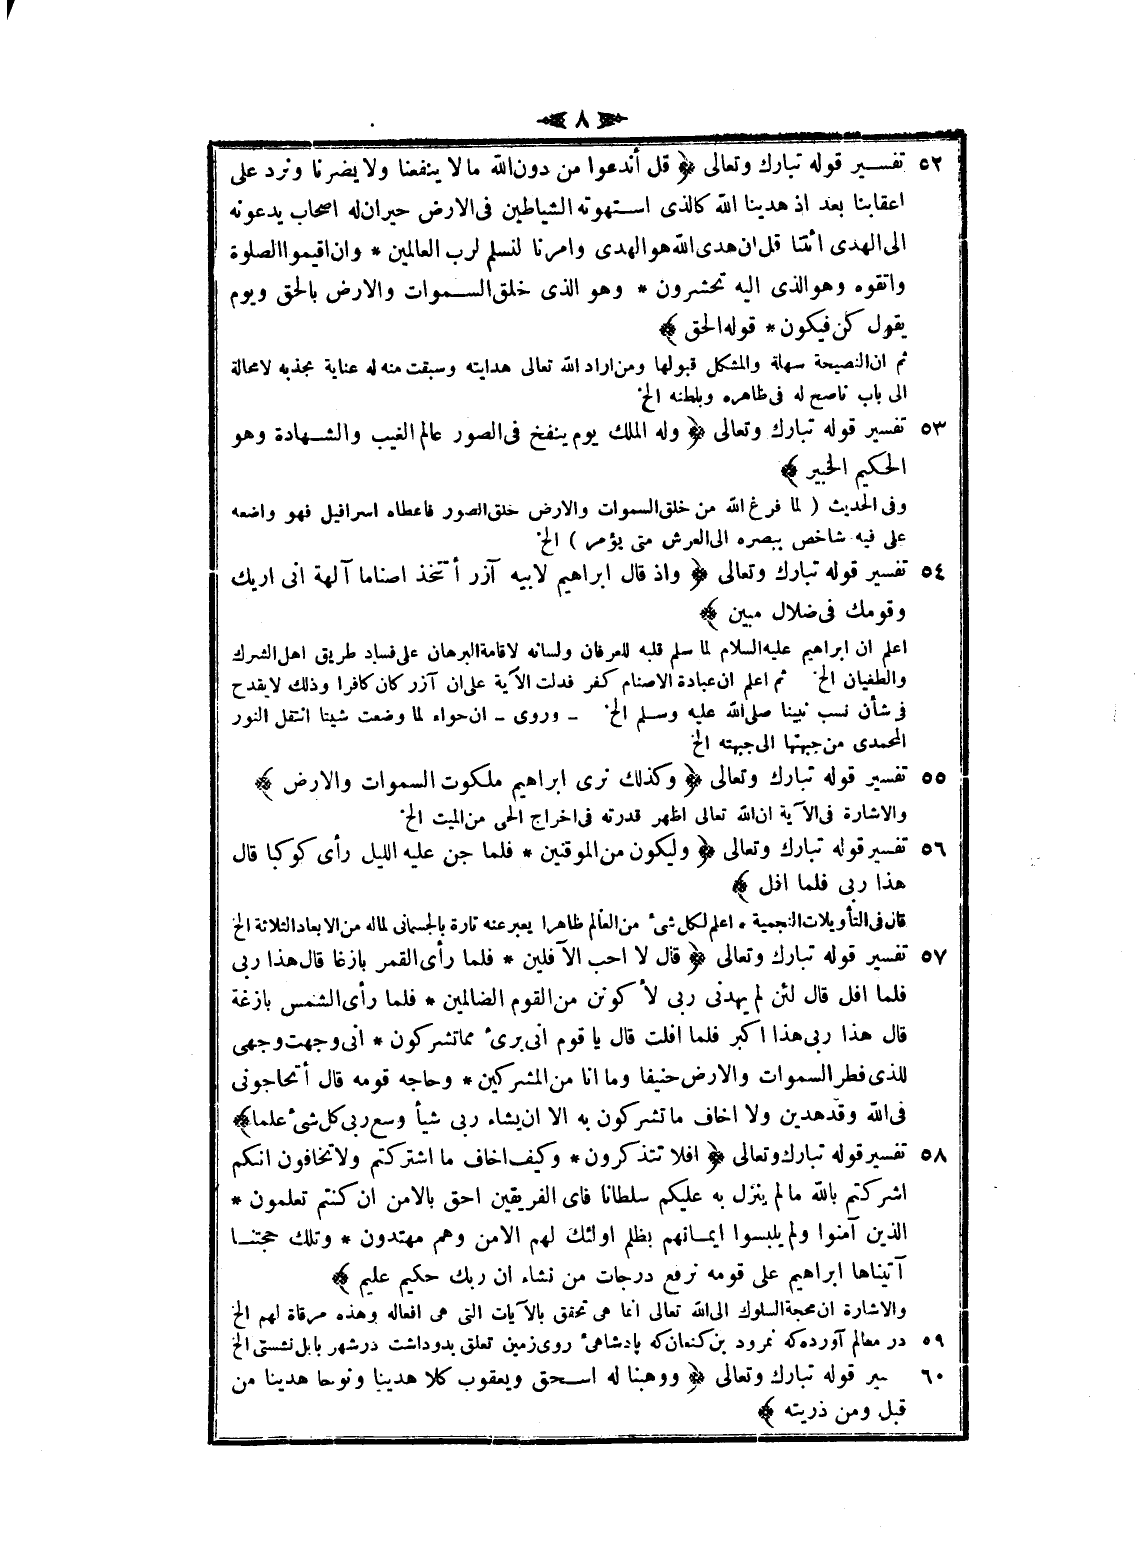 ﴿ ٨ ﴾
٥٢ تفسير قوله تبارك وتعالى ﴿ قل أندعوا من دون الله ما لا ينفعنا ولا يضرنا ونرد على
اعقابنا بعد اذ هدينا الله كالذى استهوته الشياطين فى الارض حيران له اصحاب يدعونه
الى الهدى ائتنا قل ان هدى الله هو الهدى وامرنا لنسلم لرب العالمين * وان اقيموا الصلوة
واتقوه وهو الذى اليه تحشرون * وهو الذى خلق السموات والارض بالحق ويوم
يقول كن فيكون * قوله الحق ﴾
ثم ان النصيحة سهلة والمشكل قبولها ومن اراد الله تعالى هدايته وسبقت منه له عناية يجذبه لا محالة
الى باب ناصح له فى ظاهره وباطنه الخ
٥٣ تفسير قوله تبارك وتعالى ﴿ وله الملك يوم ينفخ فى الصور عالم الغيب والشهادة وهو
الحكيم الخبير ﴾
وفى الحديث ( لما فرغ الله من خلق السموات والارض خلق الصور فاعطاه اسرافيل فهو واضعه
على فيه شاخص ببصره الى العرش متى يؤمر ) الخ
٥٤ تفسير قوله تبارك وتعالى ﴿ واذ قال ابراهيم لابيه آزر أتتخذ اصناما آلهة انى اريك
وقومك فى ضلال مبين ﴾
اعلم ان ابراهيم عليه السلام لما سلم قلبه للعرفان ولسانه لاقامة البرهان على فساد طريق اهل الشرك
والطغيان الخ ثم اعلم ان عبادة الاصنام كفر فدلت الآية على ان آزر كان كافرا وذلك لا يقدح
فى شأن نسب نبينا صلى الله عليه وسلم الخ – وروى – ان حواء لما وضعت شيتا انتقل النور
المحمدى من جبهتها الى جبهته الخ
٥٥ تفسير قوله تبارك وتعالى ﴿ وكذلك نرى ابراهيم ملكوت السموات والارض ﴾
والاشارة فى الآية ان الله تعالى اظهر قدرته فى اخراج الحى من الميت الخ
٥٦ تفسير قوله تبارك وتعالى ﴿ وليكون من الموقنين * فلما جن عليه الليل رأى كوكبا قال
هذا ربى فلما افل ﴾
قال فى التأويلات النجمية * اعلم لكل شىء من العالم ظاهرا يعبر عنه تارة بالجسمانى لماله من الابعاد الثلاثة الخ
٥٧ تفسير قوله تبارك وتعالى ﴿ قال لا احب الآفلين * فلما رأى القمر بازغا قال هذا ربى
فلما افل قال لئن لم يهدنى ربى لأكونن من القوم الضالمين * فلما رأى الشمس بازغة
قال هذا ربى هذا اكبر فلما افلت قال يا قوم انى برىء مما تشركون * انى وجهت وجهى
للذى فطر السموات والارض حنيفا وما انا من المشركين * وحاجه قومه قال أتحاجونى
فى الله وقد هدين ولا اخاف ما تشركون به الا ان يشاء ربى شيأ وسع ربى كل شىء علما ﴾
٥٨ تفسير قوله تبارك وتعالى ﴿ افلا تتذكرون * وكيف اخاف ما اشتركتم ولا تخافون انكم
اشركتم بالله ما لم ينزل به عليكم سلطانا فاى الفريقين احق بالامن ان كنتم تعلمون *
الذين آمنوا ولم يلبسوا ايمانهم بظلم اولئك لهم الامن وهم مهتدون * وتلك حجتنا
آتيناها ابراهيم على قومه نرفع درجات من نشاء ان ربك حكيم عليم ﴾
والاشارة ان محجة السلوك الى الله تعالى انما هى تحقق بالآيات التى هى افعاله وهذه مرقاة لهم الخ
٥٩ در معالم آورده كه نمرود بن كنعان كه پادشاهىء روى زمين تعلق بدو داشت در شهر بابل نشستى الخ
٦٠ ير قوله تبارك وتعالى ﴿ ووهبنا له اسحق ويعقوب كلا هدينا ونوحا هدينا من
قبل ومن ذريته ﴾